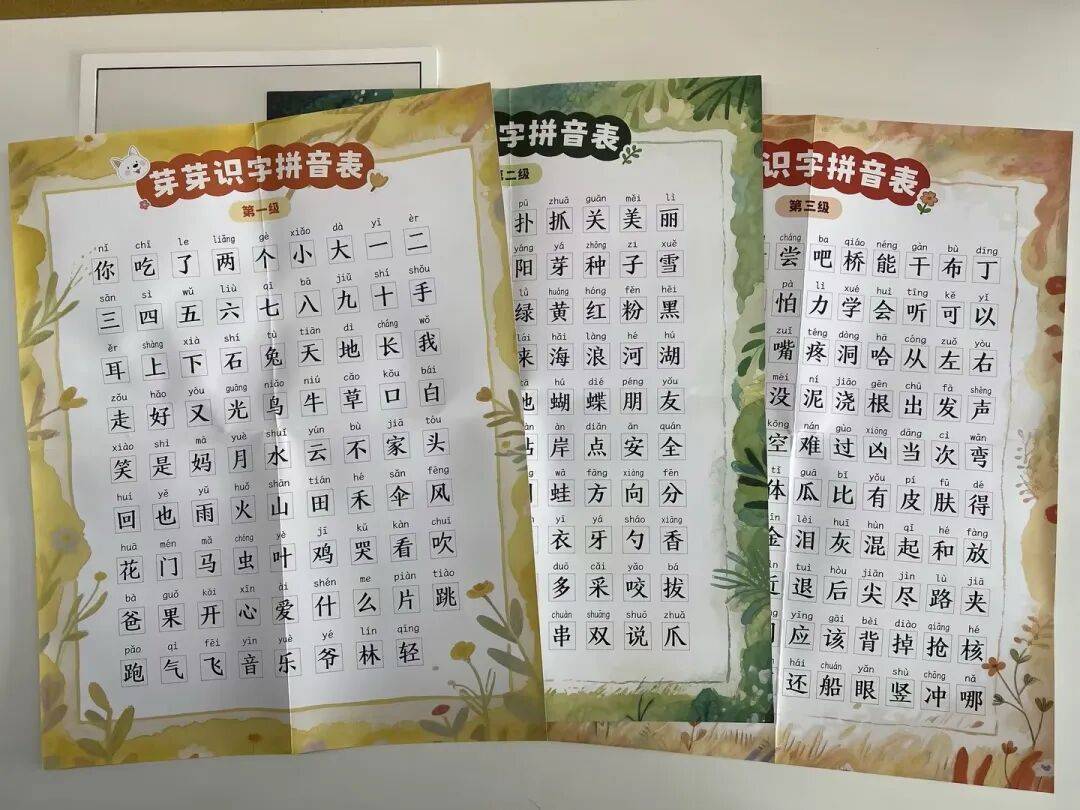 芽芽识字拼音表
第一级
nǐ chī le liǎng gè xiǎo dà yī èr
你 吃 了 两 个 小 大 一 二
sān sì wǔ liù qī bā jiǔ shí shǒu
三 四 五 六 七 八 九 十 手
ěr shàng xià shí tù tiān dì cháng wǒ
耳 上 下 石 兔 天 地 长 我
zǒu hǎo yòu guāng niǎo niú cǎo kǒu bái
走 好 又 光 鸟 牛 草 口 白
xiào shì mā yuè shuǐ yún bù jiā tóu
笑 是 妈 月 水 云 不 家 头
huí yě yǔ huǒ shān tián hé sǎn fēng
回 也 雨 火 山 田 禾 伞 风
huā mén mǎ chóng yè jī kū kàn chuī
花 门 马 虫 叶 鸡 哭 看 吹
bà guǒ kāi xīn ài shén me piàn tiào
爸 果 开 心 爱 什 么 片 跳
pǎo qì fēi yīn yuè yé lín qīng
跑 气 飞 音 乐 爷 林 轻
字拼音表
第二级
pū zhuā guān měi lì
扑 抓 关 美 丽
yáng yá zhǒng zi xuě
阳 芽 种 子 雪
lǜ huáng hóng fěn hēi
绿 黄 红 粉 黑
lái hǎi làng hé hú
来 海 浪 河 湖
hú dié péng yǒu
蝴 蝶 朋 友
àn diǎn ān quán
岸 点 安 全
wā fāng xiàng fēn
蛙 方 向 分
yī yá sháo xiāng
衣 牙 勺 香
duō cǎi yǎo bá
多 采 咬 拔
chuàn shuāng shuō zhuǎ
串 双 说 爪
识字拼音表
第三级
cháng ba qiáo néng gàn bù dīng
尝 吧 桥 能 干 布 丁
pà lì xué huì tīng kě yǐ
怕 力 学 会 听 可 以
zuǐ téng dòng hā cóng zuǒ yòu
嘴 疼 洞 哈 从 左 右
méi ní jiāo gēn chū fā shēng
没 泥 浇 根 出 发 声
kōng nán guò xiōng dāng cì wān
空 难 过 凶 当 次 弯
tǐ guā bǐ yǒu pí fū dé
体 瓜 比 有 皮 肤 得
lèi huī hùn qǐ hé fàng
泪 灰 混 起 和 放
tuì hòu jiān jìn lù jiā
近 退 后 尖 尽 路 夹
yīng gāi bèi diào qiǎng hé
应 该 背 掉 抢 核
hái chuán yǎn shù chōng nǎ
还 船 眼 竖 冲 哪